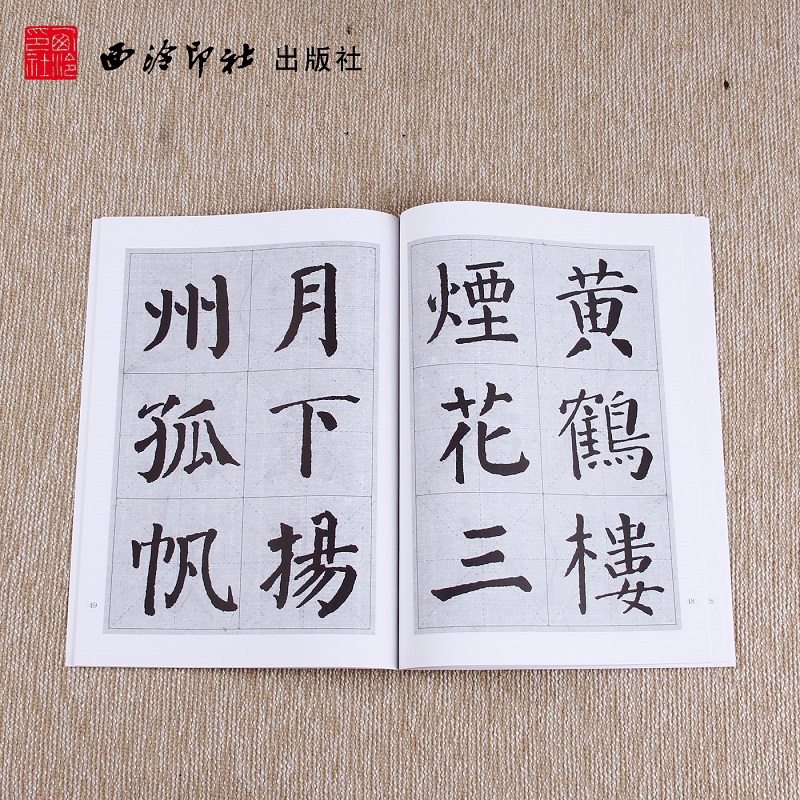 西泠印社
西泠印社 出版社
黄鶴樓
煙花三
月下揚
州孤帆
48
49